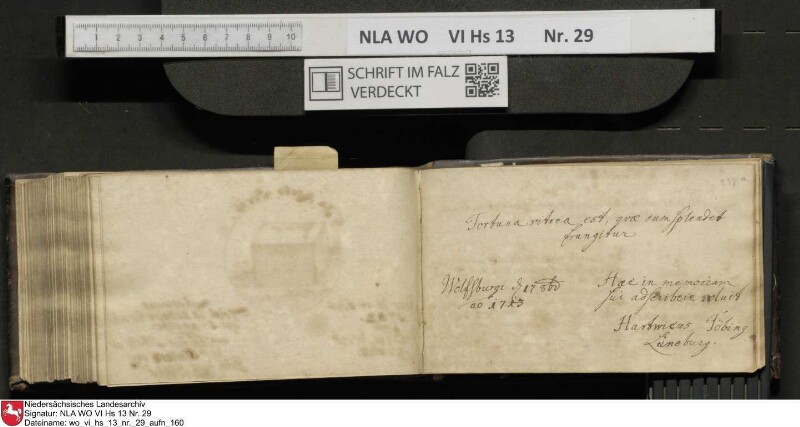 1 2 3 4 5 6 7 8 9 10
NLA WO VI Hs 13 Nr. 29
SCHRIFT IM FALZ
VERDECKT
Fortuna vitrea est, quæ cum splendet
frangitur
Wolffburgi d 17
ao 1713
Hæc in memoriam
sui adscribere voluit
Hartwicus Töbing
Luneburg.
Niedersächsisches Landesarchiv
Signatur: NLA WO VI Hs 13 Nr. 29
Dateiname: wo_vi_hs_13_nr._29_aufn_160